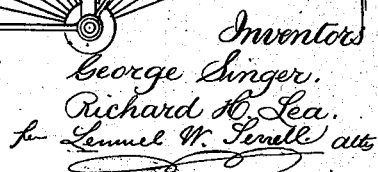 Inventors
George Singer.
Richard H. Lea.
per Lemuel W. Serrell atty